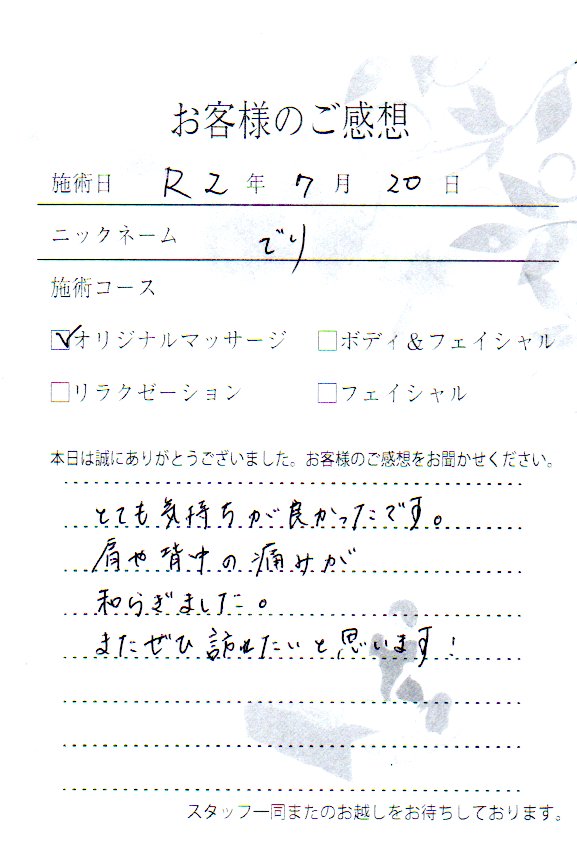 お客様のご感想
施術日 R2年 7月 20日
ニックネーム でり
施術コース
オリジナルマッサージ ボディ&フェイシャル
リラクゼーション フェイシャル
本日は誠にありがとうございました。お客様のご感想をお聞かせください。
とても気持ちが良かったです。
肩や背中の痛みが
和らぎました。
またぜひ訪れたいと思います!
スタッフ一同またのお越しをお待ちしております。